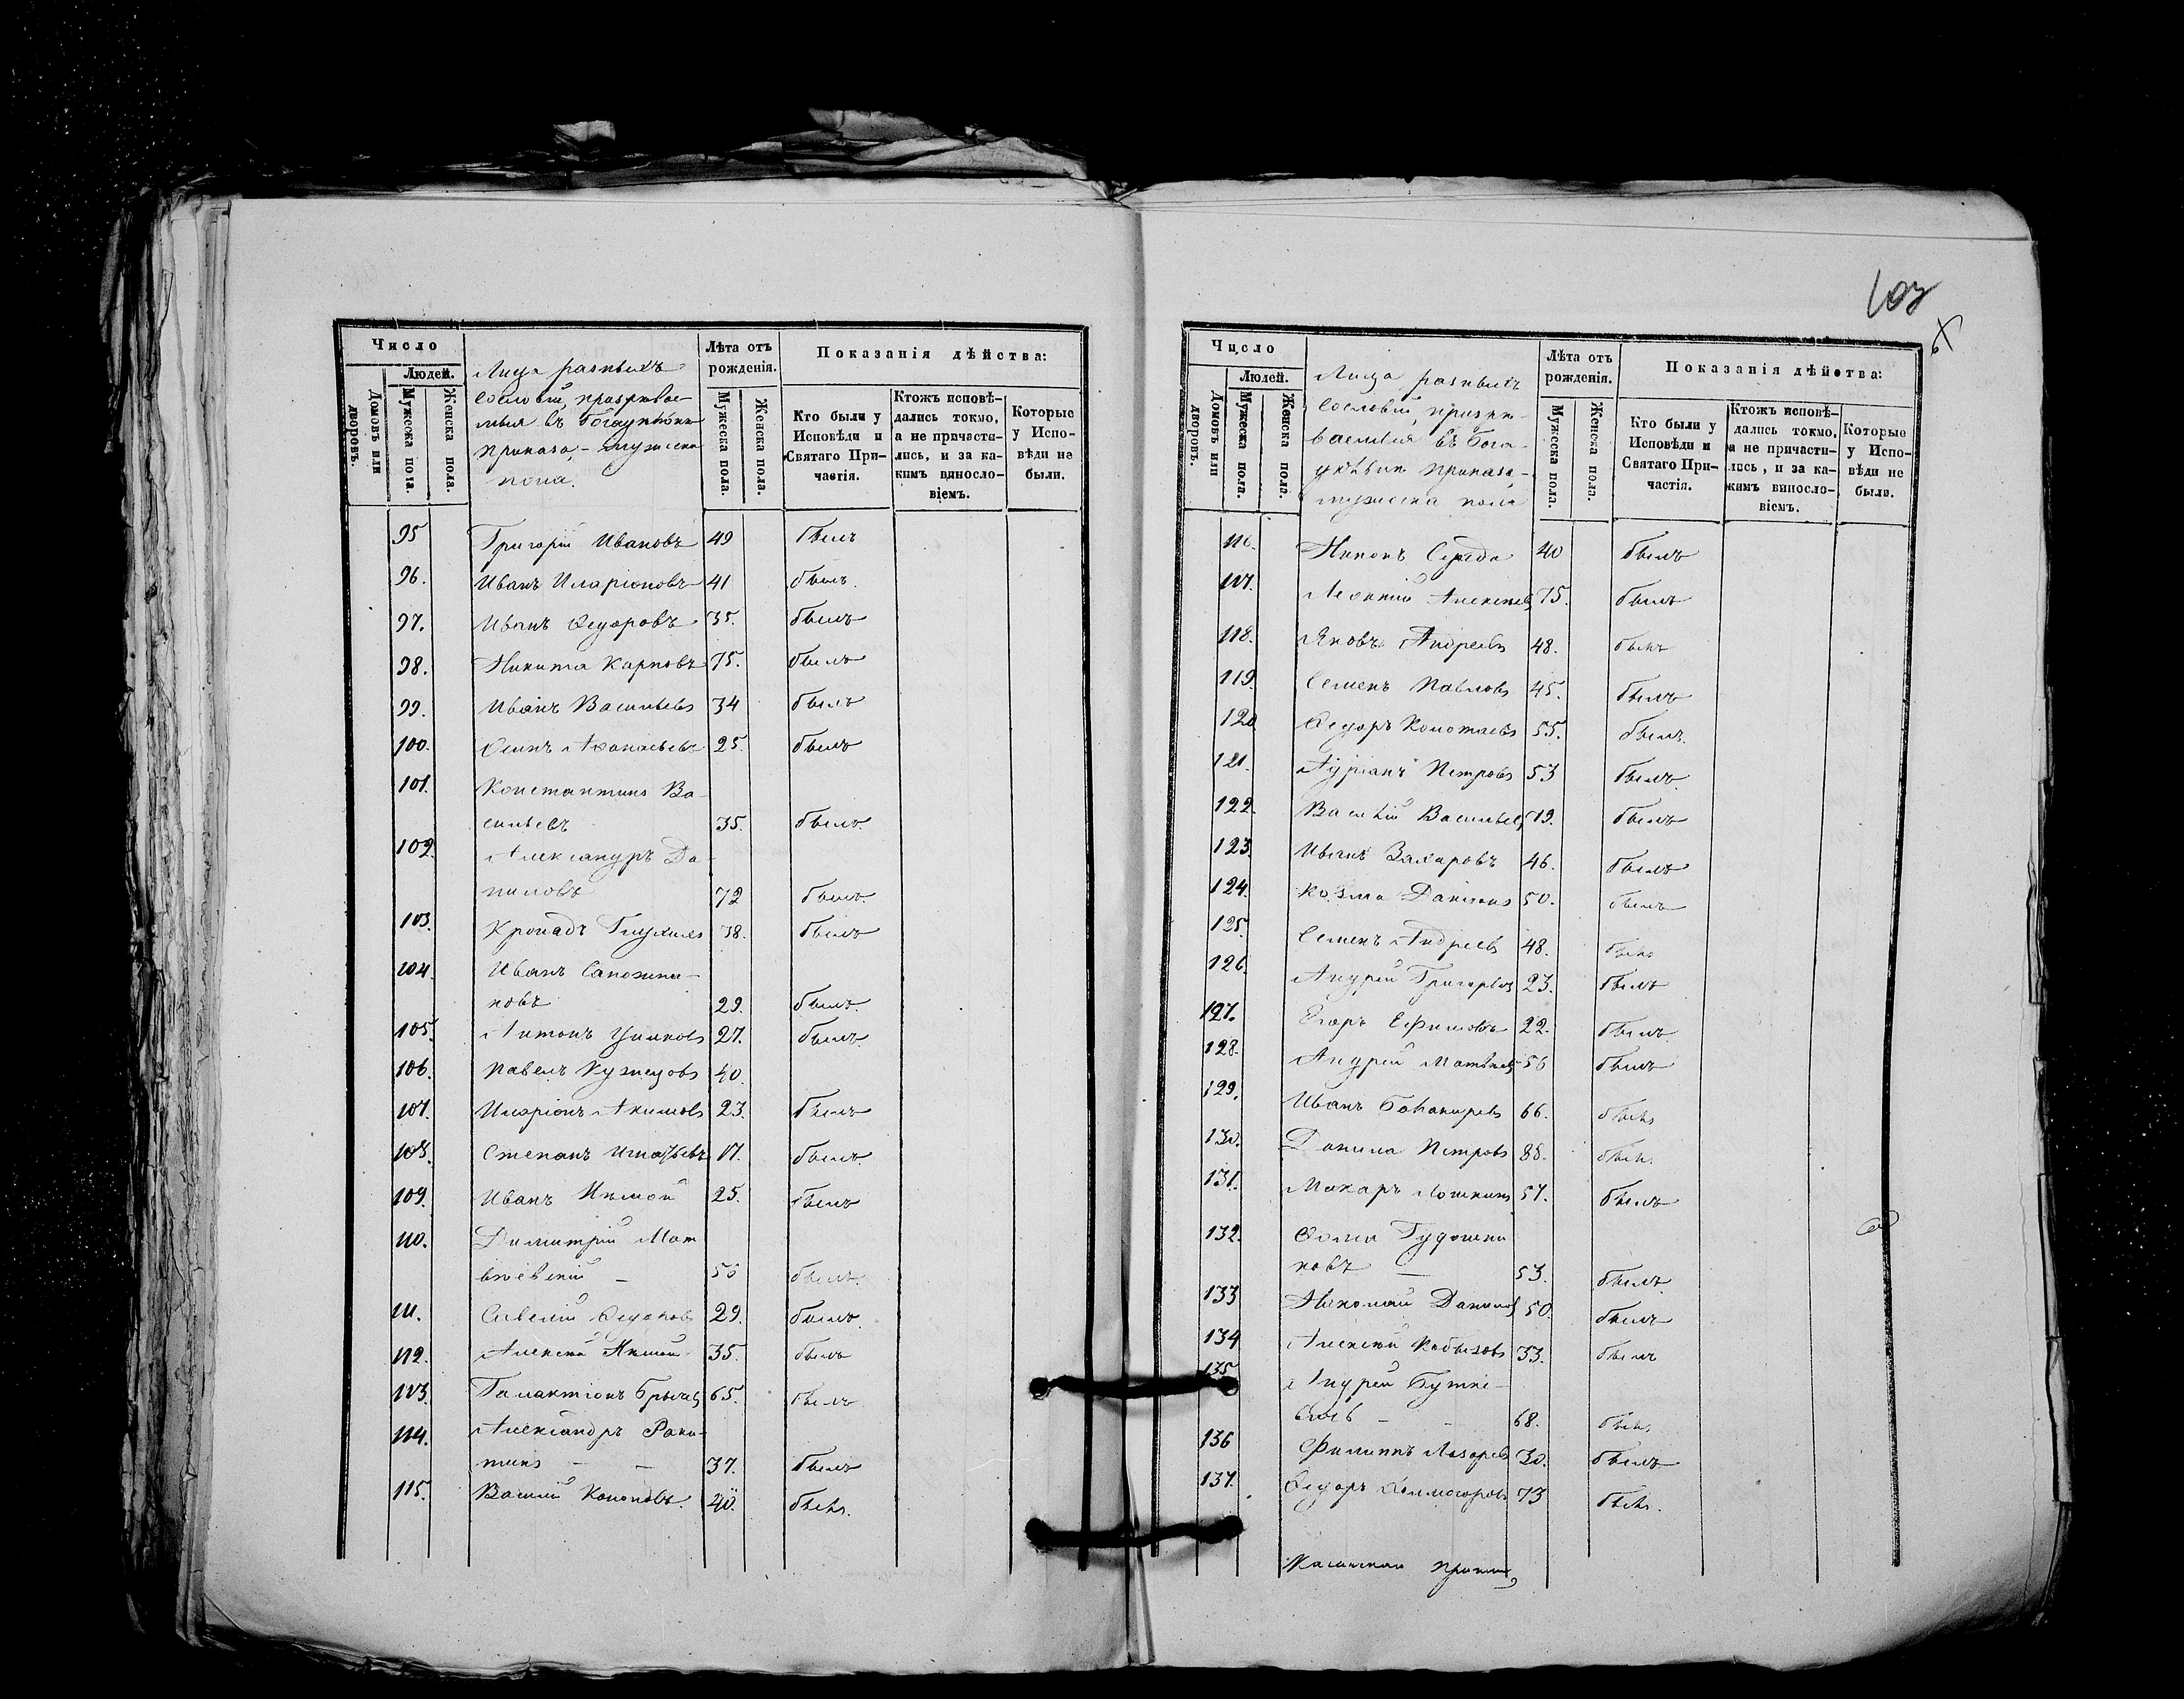 Число
Людей.
Домовъ или дворовъ.
Мужеска пола.
Женска пола.
Лица разныхъ
сословій, призрѣвае-
мыя въ
приказа, - мужеска
пола.
Лѣта отъ рожденія.
Мужеска пола.
Женска пола.
Показанія дѣйства:
Кто были у Исповѣди и Святаго При-частія.
Ктожъ исповѣ-дались токмо, а не причасти-лись, и за ка-кимъ винносло-віемъ.
Которые у Испо-вѣди не были.
95 Григорій Ивановъ 49 былъ
96. Иванъ Иларіоновъ 41 былъ.
97. Иванъ Ѳедоровъ 35. былъ
98. Никита Карповъ 75. былъ
99. Иванъ Васильевъ 34 былъ
100. Осипъ Аѳанасьевъ 25. былъ
101. Константинъ Ва-
сильевъ 35. былъ.
102. Александръ Да-
ниловъ 72 былъ.
103. 38. былъ
104. Иванъ Сапожни-
ковъ 29. былъ
105. Антонъ 27. былъ.
106. Павелъ Кузнецовъ 40.
107. Иларіонъ Акимовъ 23. былъ
108. Степанъ Игнатьевъ 17. былъ.
109. Иванъ Нѣмой 25. былъ
110. Димитрій Мат
вѣевскій - 50 былъ.
111. Савелій Ѳедоровъ 29. былъ.
112. Алексѣй Нѣмой 35. былъ
113. Галактіонъ 65. былъ
114. Александръ Раки-
тинъ - - 37. былъ
115. Василій Кононовъ. 40. былъ.
103
Число
Людей.
Домовъ или дворовъ.
Мужеска пола.
Женска пола.
Лица разныхъ
сословій, призрѣ-
ваемыя въ Бога-
приказа, -
мужеска пола
Лѣта отъ рожденія.
Мужеска пола.
Женска пола.
Показанія дѣйства:
Кто были у Исповѣди и Святаго При-частія.
Ктожъ исповѣ-дались токмо, а не причасти-лись, и за ка-кимъ винносло-віемъ.
Которые у Испо-вѣди не были.
116. Никонъ Середа 40 былъ
117. Леонтій Алексѣевъ 75. былъ
118. Яковъ Андреевъ 48. былъ
119. Семенъ Павловъ 45. былъ
120 Ѳедоръ 55. былъ.
121. Петровъ 53 былъ.
122. Василій Васильевъ 79. былъ
123. Иванъ Захаровъ 46. былъ
124. Козма Даниловъ 50. былъ
125. Семенъ Андреевъ 48. былъ
126. Андрей Григорьевъ 23. былъ
127. Егоръ Ефимовъ 22. былъ.
128. Андрей Матвѣевъ 56 былъ
129. Иванъ 66. былъ
130. Данила Петровъ 88. былъ.
131. Макаръ Лошкинъ 57. былъ
132. Ѳома Гудошни
ковъ — 53. былъ.
133 Николай Даниловъ 50. былъ
134 Алексѣй Кобызовъ 33. былъ
135 Андрей
- - 68. былъ.
136 Филиппъ Лазаревъ 30. былъ
137. Ѳедоръ Холмогоровъ 73 былъ.